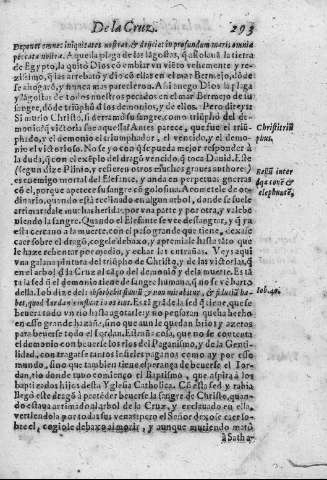 De la Cruz. 293
Deponet omnes iniquitates nostras & deijciet in profundum maris omnia
peccata nostra. Aquella plaga de las lãgostas, q̃ assolauã la tierra
de Egypto, la quitò Dios cõ embiar vn viento vehemente y re-
zissimo, q̃ las arrebatò y dio cõ ellas en el mar Bermejo, dõde
se ahogarõ, y nunca mas parecieron. Ahi luego Dios la plaga
y lãgostas de todos nuestros pecados en el mar Bermejo de su
sangre, dõde triũphò de los demonios, y de ellos. Pero direys:
Si murio Christo, si derramò su sangre, como triũphò del de-
monio? q̃ victoria fue aquella? Antes parece, que fue el triũ-
phado, y el demonio el triumphador, el vencido, y el demo-
nio el victorioso. No se yo con que pueda mejor responder à
la duda, q̃ con el exẽplo del dragò vencido, q̃ toca Dauid. Este
(segun dize Plinio, y refieren otros muchos graues authores)
es enemigo mortal del Elefante, y anda en perpetuas guerras
cõ el, porque apetece su sangre cõ golosina. Acometele de or-
dinario, quando està reclinado en algun arbol, donde se suele
arrimar: dale muchas heridas, por vna parte y por otra, y vale be-
uiendo la sangre. Quando el Elefante se ve dessangrar, y q̃ ya
està cercano a la muerte, con el peso grande que tiene, dexase
caer sobre el drago, cogele debaxo, y apremiale hasta tãto que
le haze rebentar por medio, y echar las entrañas. Veys aqui
vna galana pintura del triũpho de Christo, y de las victorias, q̃
en el arbol de la Cruz alcãço del demonio y de la muerte. Es tã
ta la sed q̃ el demonio tiene de sangre humana, q̃ no se vahrto
della. Iob dize del:
bet, quod Iordanis influat in os eius. Es tã grãde la sed q̃ tiene, que se
beuera todo vn rio hasta agotarle: y no pensaràn que ha hecho
en esso grande hazaña, sino que aun le quedan brios y azeros
para beuerse todo el Iordan. Està nuestra cosa, que no se contenta
el demonio con beuerse los rios del Paganismo, y de la Genti-
lidad, con tragarse tantos infieles paganos como ay por esso
mundo, sino que tambien tiene esperança de beuerse el Ior-
dan, rio donde tuuo comienço el Baptismo, que aspira à los
baptizados hijos desta Yglesia Catholica. Cõ esta sed y rabia
llegò este dragò à pretẽder beuerse la sangre de Christo, quan-
do estaua arrimado al arbol de la Cruz, y enclauado en ella,
vertiendola por todas sus venas: pero el Señor dexose caer so-
bre el, cogiole debaxo al morir, y aunque muriendo matò
à Satha-
Christi triũ
phus.
Bellũ inter
dracone &
elephante.
Iob. 40.